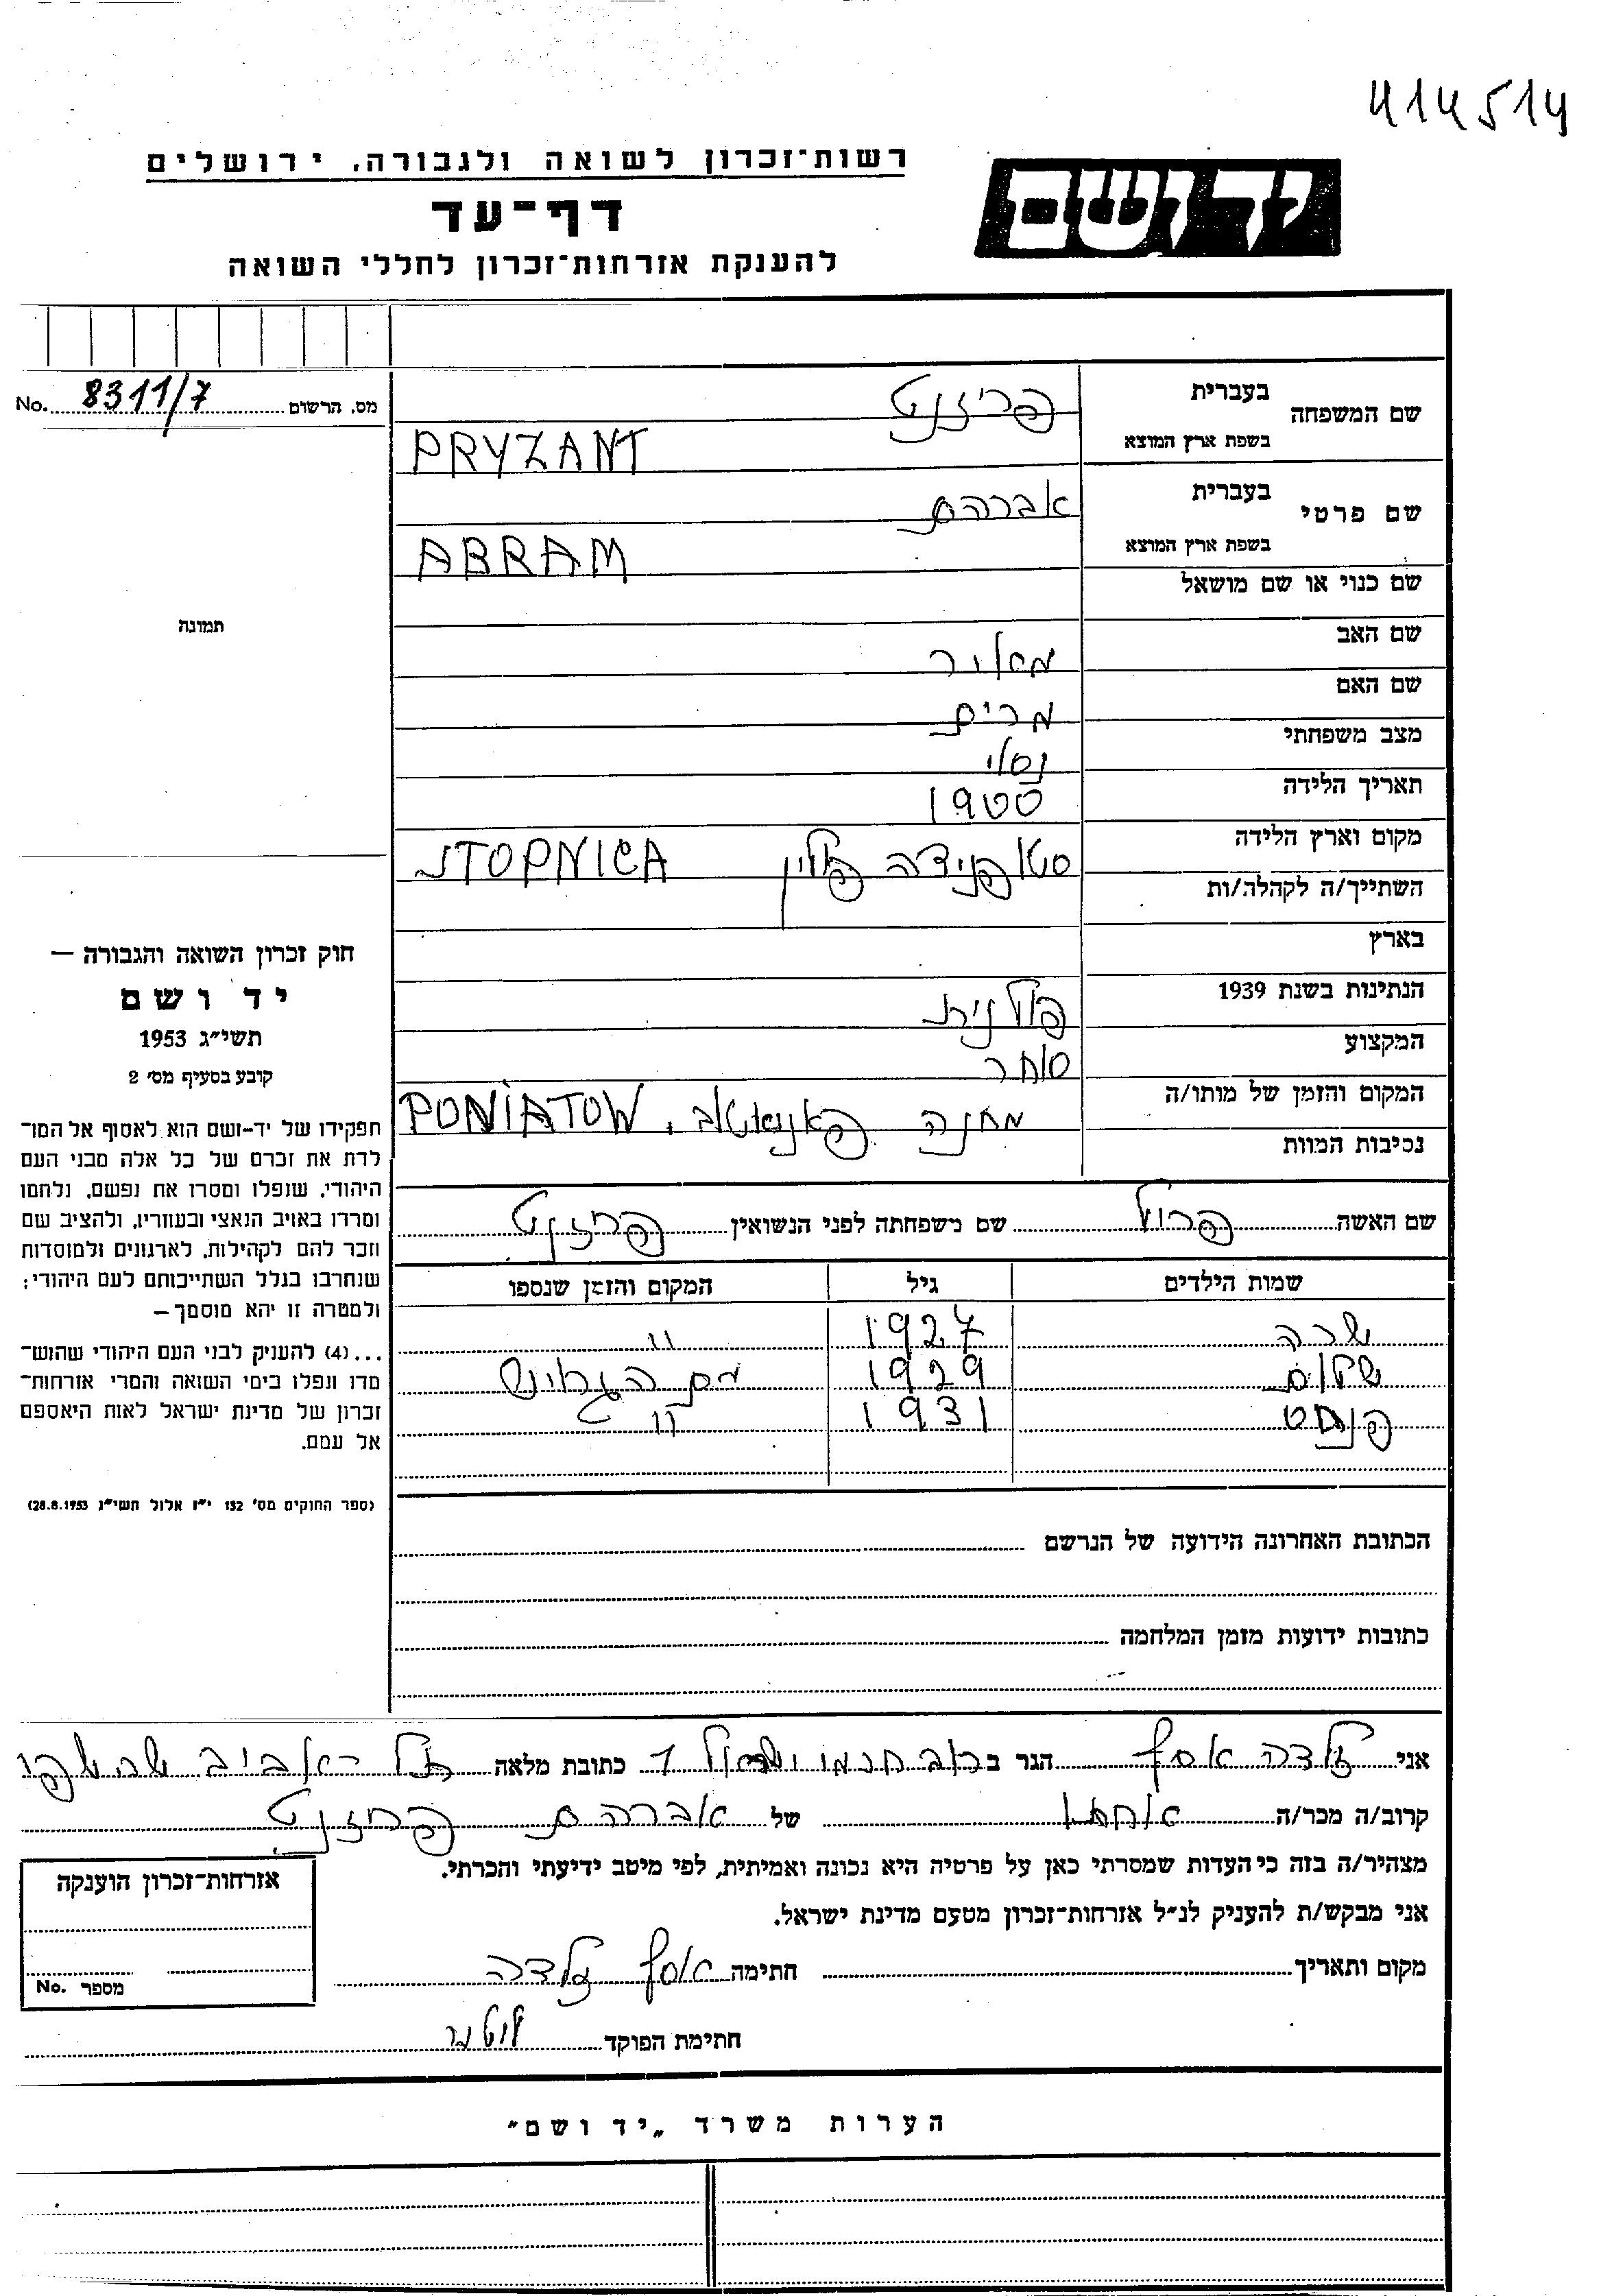 414514
יד ושם
רשות־זכרון לשואה ולגבורה, ירושלים
דף־עד
להענקת אזרחות־זכרון לחללי השואה
מס. הרשום 8311/7 No.
שם המשפחה
בעברית פריזנט
בשפת ארץ המוצא PRYZANT
שם פרטי
בעברית אברהם
בשפת ארץ המוצא ABRAM
שם כנוי או שם מושאל
שם האב מאיר
שם האם מרים
מצב משפחתי נסוי
תאריך הלידה 1900
מקום וארץ הלידה סטופניצה פולין STOPNICA
השתייך/ה לקהלה/ות
בארץ
הנתינות בשנת 1939 פולנית
המקצוע סוחר
המקום והזמן של מותו/ה מחנה PONIATOW
נסיבות המוות
תמונה
חוק זכרון השואה והגבורה —
יד ושם
תשי״ג 1953
קובע בסעיף מס׳ 2
תפקידו של יד-ושם הוא לאסוף אל המו־
לדת את זכרם של כל אלה מבני העם
היהודי, שנפלו ומסרו את נפשם, נלחמו
ומרדו באויב הנאצי ובעוזריו, ולהציב שם
וזכר להם לקהילות, לארגונים ולמוסדות
שנחרבו בגלל השתייכותם לעם היהודי;
ולמטרה זו יהא מוסמך —
...(4) להעניק לבני העם היהודי שהוש־
מדו ונפלו בימי השואה והמרי אזרחות־
זכרון של מדינת ישראל לאות היאספם
אל עמם.
(ספר החוקים מס׳ 132 י״ז אלול תשי״ג 28.8.1953)
שם האשה שם משפחתה לפני הנשואין פריזנט
שמות הילדים גיל המקום והזמן שנספו
שרה 1927 "
שלום 1929
1931 "
הכתובת האחרונה הידועה של הנרשם
כתובות ידועות מזמן המלחמה
אני זלדה אסף הגר ב כתובת מלאה תל-אביב
קרוב/ה מכר/ה של אברהם פריזנט
מצהיר/ה בזה כי העדות שמסרתי כאן על פרטיה היא נכונה ואמיתית, לפי מיטב ידיעתי והכרתי.
אני מבקש/ת להעניק לנ״ל אזרחות־זכרון מטעם מדינת ישראל.
מקום ותאריך חתימה אסף זלדה
אזרחות־זכרון הוענקה
מספר No.
חתימת הפוקד
הערות משרד „יד ושם״